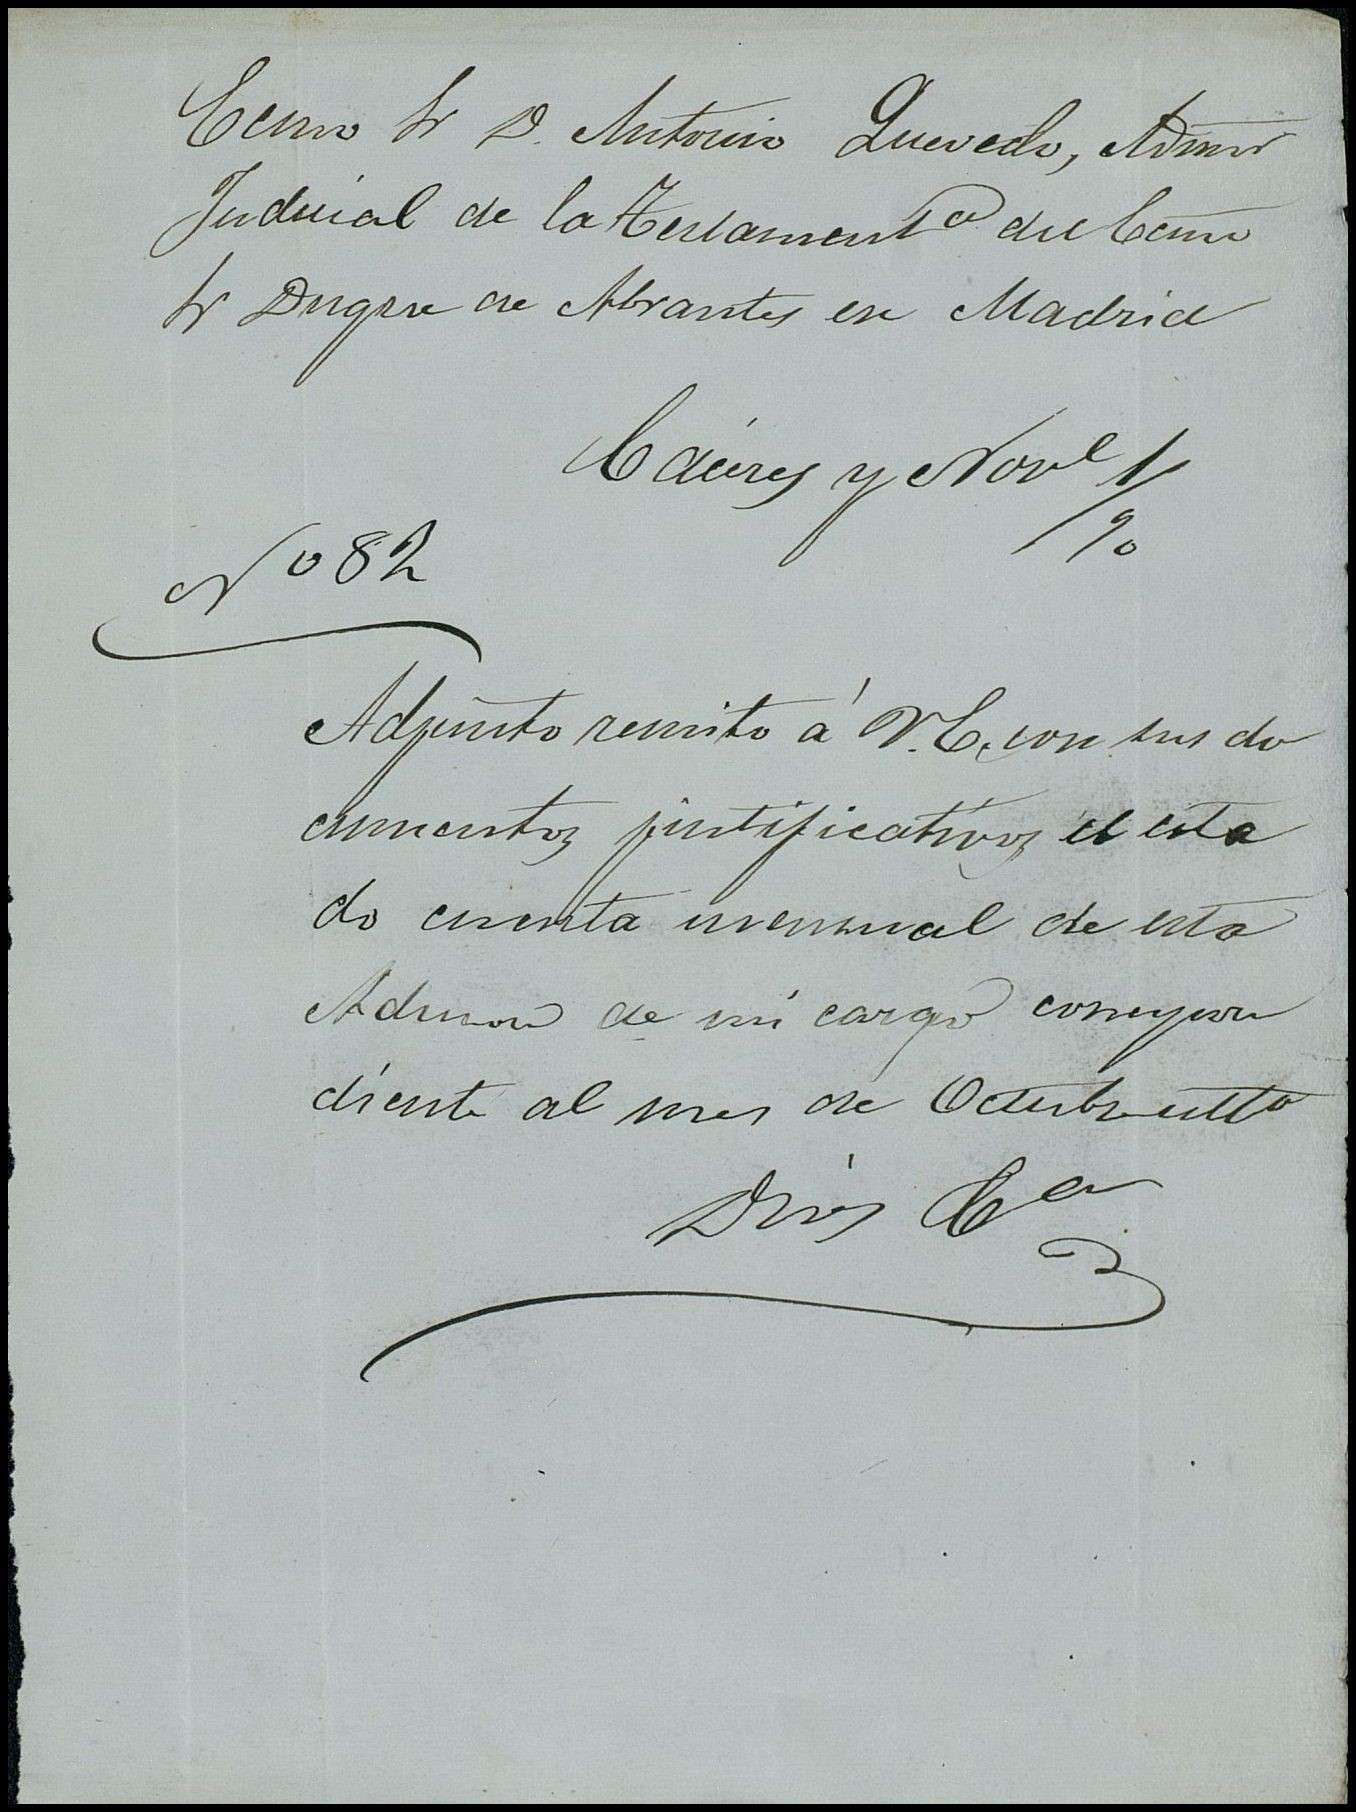 Ecmo Sr D. Antonio Quevedo, Admor
Judicial de la Testamentª del Ecmo
Sr Duque de Abrantes en Madrid
Cáceres y Nove 1/90
No 82
Adjunto remito á V.E. con sus do
cumentos justificativos el esta
do cuenta mensual de esta
Admon de mi cargo correspon
diente al mes de Octubre ulto
Dios &ª